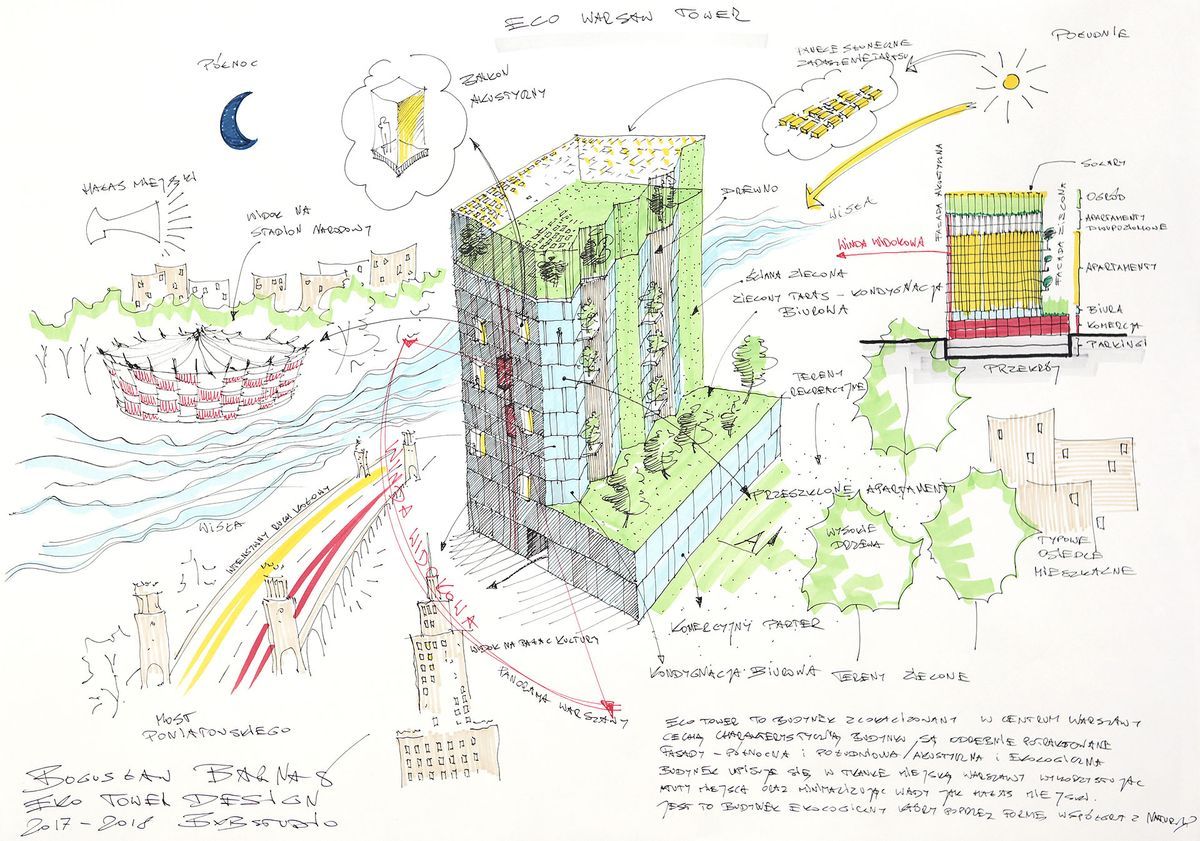 ECO WARSAW TOWER
PÓŁNOC
BALKON
AKUSTYCZNY
PANELE SŁONECZNE
ZADASZENIE TARASU
POŁUDNIE
HAŁAS MIEJSKI
WIDOK NA
STADION NARODOWY
DREWNO
WISŁA
WINDA WIDOKOWA
ŚCIANA ZIELONA
ZIELONY TARAS - KONDYGNACJA
BIUROWA
FASADA AKUSTYCZNA
FASADA ZIELONA
SOLARY
OGRÓD
APARTAMENTY
DWUPOZIOMOWE
APARTAMENTY
BIURA
KOMERCJA
PARKINGI
PRZEKRÓJ
TERENY
REKREACYJNE
PRZESZKLONE APARTAMENTY
WYSOKIE
DRZEWA
TYPOWE
OSIEDLE
MIESZKALNE
WISŁA
INTENSYWNY RUCH KOŁOWY
WINDA WIDOKOWA
WIDOK NA PAŁAC KULTURY
PANORAMA WARSZAWY
KOMERCYJNY PARTER
KONDYGNACJA BIUROWA
TERENY ZIELONE
MOST
PONIATOWSKIEGO
BOGUSŁAW BARNAŚ
EKO TOWER DESIGN
2017-2018 BXBSTUDIO
EKO TOWER TO BUDYNEK ZLOKALIZOWANY W CENTRUM WARSZAWY
CECHĄ CHARAKTERYSTYCZNĄ BUDYNKU SĄ ODRĘBNIE POTRAKTOWANE
FASADY - PÓŁNOCNA I POŁUDNIOWA / AKUSTYCZNA I EKOLOGICZNA
BUDYNEK WPISUJE SIĘ W TKANKĘ MIEJSKĄ WARSZAWY WYKORZYSTUJĄC
ATUTY MIEJSCA ORAZ MINIMALIZUJĄC WADY JAK HAŁAS MIEJSKI.
JEST TO BUDYNEK EKOLOGICZNY KTÓRY POPRZEZ FORMĘ WSPÓŁGRA Z NATURĄ